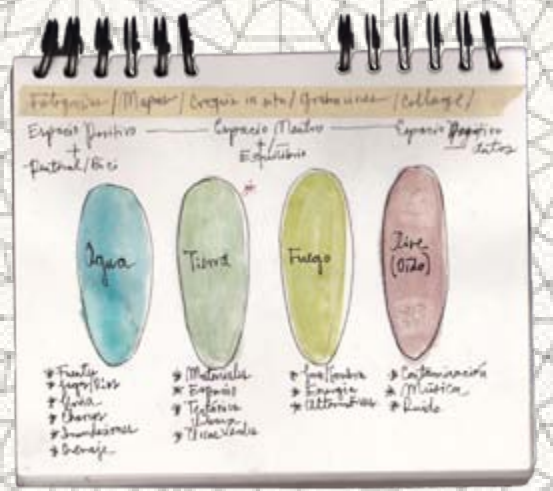 Fotografías / Mapas / Croquis in situ / Grabaciones / Collage /
Espacio Positivo — Espacio Neutro — Espacio Negativo
+
+/—
—
Peatonal/Bici
Equilibrio
datos
Agua
Tierra
Fuego
Aire
(Oído)
* Fuentes
* Lluvia
* Charcos
* Inundaciones
* Drenaje
* Materiales
* Espacio
* Tectónica
* Áreas Verdes
* Luz/Sombra
* Energía
* Alternativas
* Contaminación
* Música
* Ruido